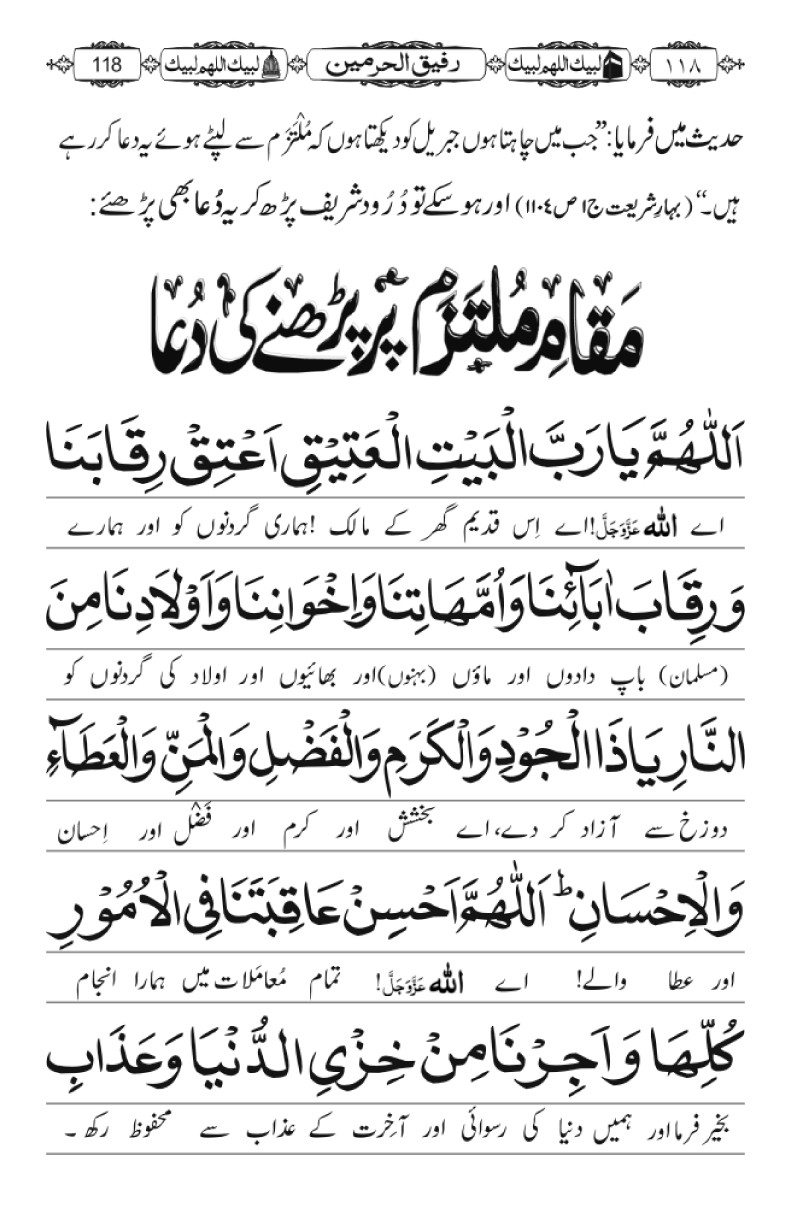 ١١٨ لبیك اللهم لبیك رفیق الحرمین لبیك اللهم لبیك 118
حدیث میں فرمایا: ”جب میں چاہتا ہوں جبریل کو دیکھتا ہوں کہ مُلْتَزَم سے لپٹے ہوئے یہ دعا کر رہے
ہیں۔“ (بہارِ شریعت ج۱ ص ۱۱۰٤) اور ہوسکے تو دُرُود شریف پڑھ کر یہ دُعا بھی پڑھئے:
مَقامِ مُلتَزَم پر پڑھنے کی دُعا
اَللّٰهُمَّ یَا رَبَّ الْبَیْتِ الْعَتِیْقِ اَعْتِقْ رِقَابَنَا
اے اللہ عَزَّوَجَلَّ! اے اِس قدیم گھر کے مالک !ہماری گردنوں کو اور ہمارے
وَرِقَابَ اٰبَآئِنَا وَاُمَّهَاتِنَا وَاِخْوَانِنَا وَاَوْلَادِنَا مِنَ
(مسلمان) باپ دادوں اور ماؤں (بہنوں) اور بھائیوں اور اولاد کی گردنوں کو
النَّارِ یَا ذَا الْجُوْدِ وَالْكَرَمِ وَالْفَضْلِ وَالْمَنِّ وَالْعَطَآءِ
دوزخ سے آزاد کر دے، اے بخشش اور کرم اور فَضْل اور اِحسان
وَالْاِحْسَانِ ؕ اَللّٰهُمَّ اَحْسِنْ عَاقِبَتَنَا فِی الْاُمُوْرِ
اور عطا والے! اے اللہ عَزَّوَجَلَّ! تمام مُعامَلات میں ہمارا انجام
كُلِّهَا وَاَجِرْنَا مِنْ خِزْیِ الدُّنْیَا وَعَذَابِ
بخیر فرما اور ہمیں دنیا کی رسوائی اور آخِرت کے عذاب سے محفوظ رکھ ۔